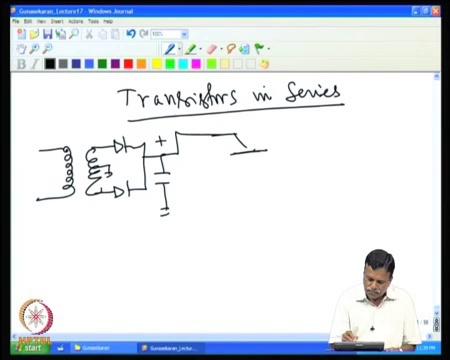 Gunasekaran_Lecture17 - Windows Journal
File Edit View Insert Actions Tools Help
100%
B I
Transistors in Series
+
start
Gunasekaran
Gunasekaran_Lectu...